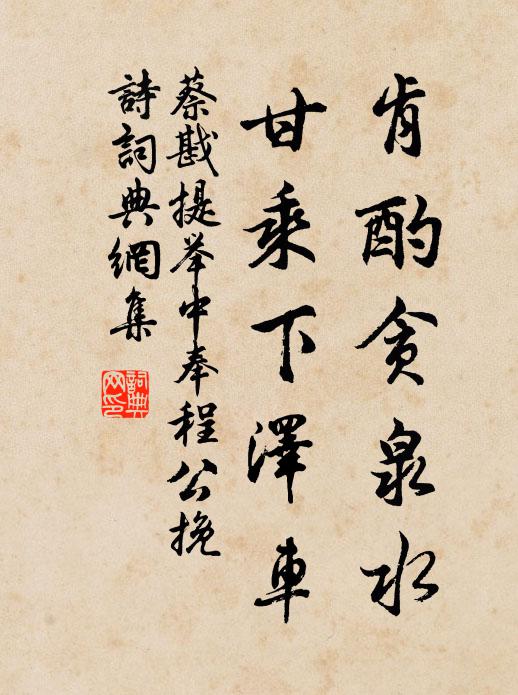 肯酌貪泉水
甘乘下澤車
蔡戡提举中奉程公挽
詩詞典網集
詞典
网印